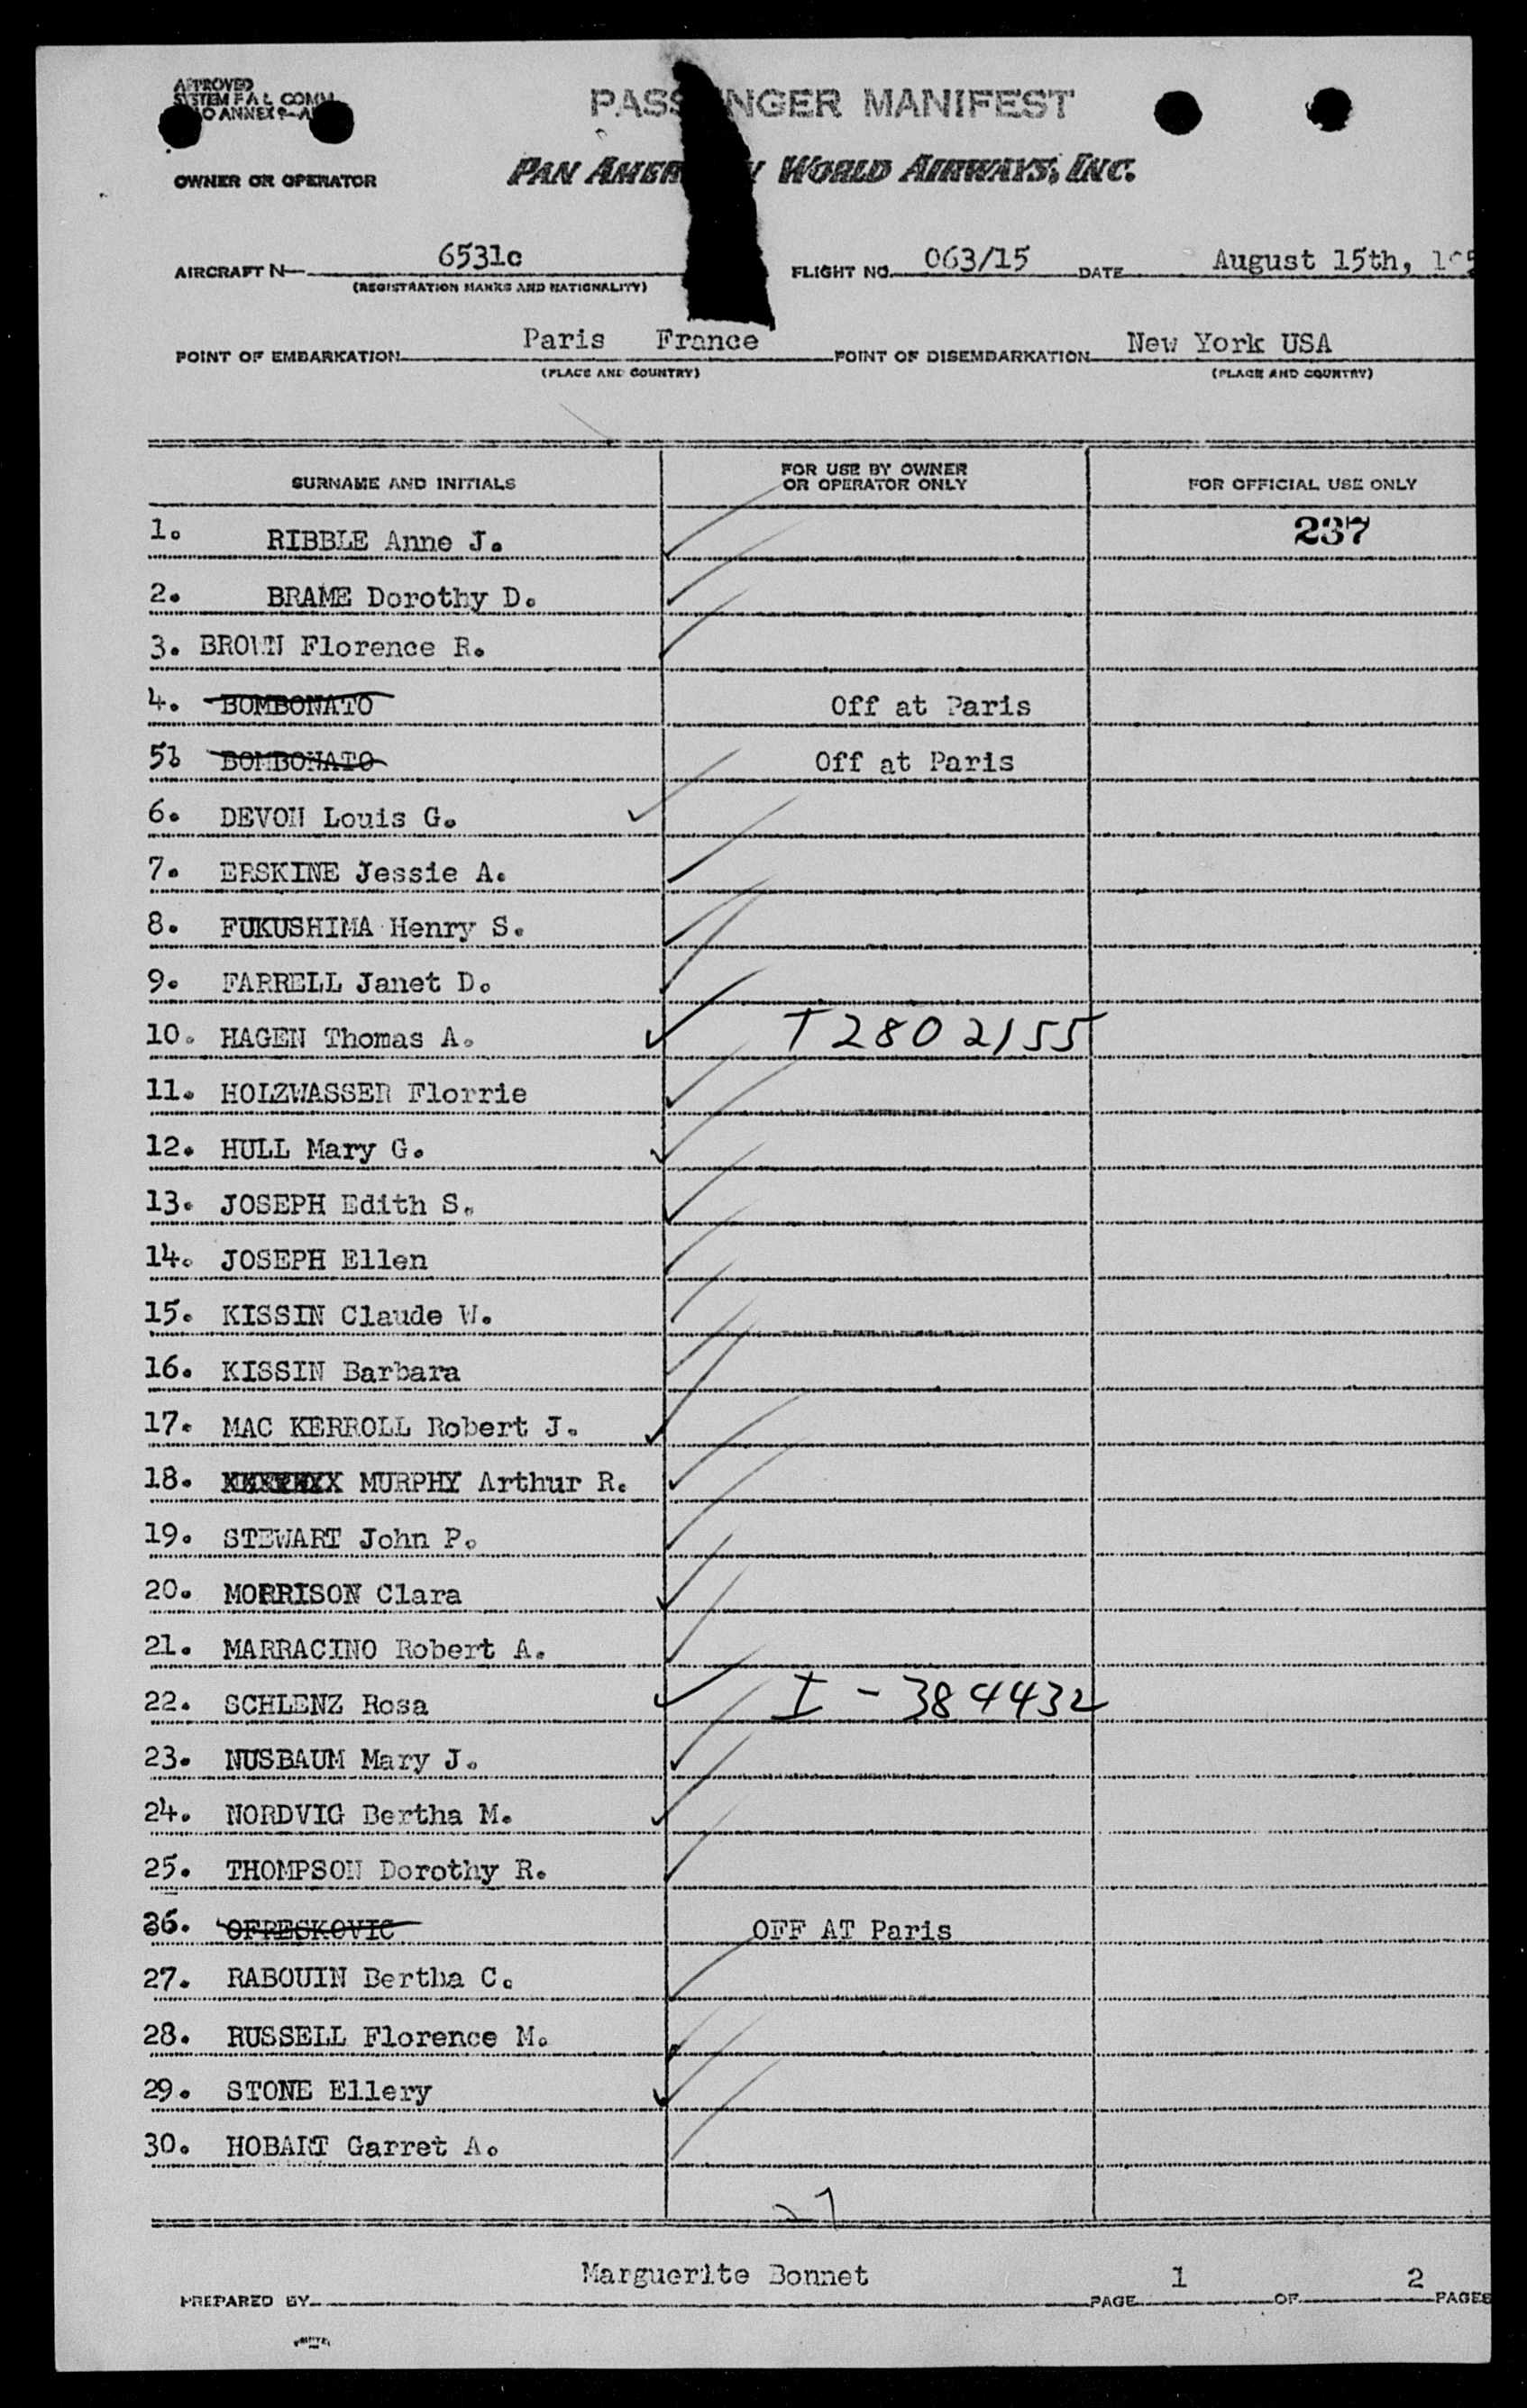 APPROVED
SYSTEM F A L COMM
O ANNEX 9-A
PASS NGER MANIFEST
OWNER OR OPERATOR
PAN AMER N WORLD AIRWAYS, INC.
AIRCRAFT N 6531c FLIGHT NO. 063/15 DATE August 15th,
(REGISTRATION MARKS AND NATIONALITY)
POINT OF EMBARKATION Paris France POINT OF DISEMBARKATION New York USA
(PLACE AND COUNTRY) (PLACE AND COUNTRY)
SURNAME AND INITIALS FOR USE BY OWNER OR OPERATOR ONLY FOR OFFICIAL USE ONLY
1. RIBBLE Anne J. 237
2. BRAME Dorothy D.
3. BROWN Florence R.
4. BOMBONATO Off at Paris
5b BOMBONATO Off at Paris
6. DEVON Louis G.
7. ERSKINE Jessie A.
8. FUKUSHIMA Henry S.
9. FARRELL Janet D.
10. HAGEN Thomas A. T2802155
11. HOLZWASSER Florrie
12. HULL Mary G.
13. JOSEPH Edith S.
14. JOSEPH Ellen
15. KISSIN Claude W.
16. KISSIN Barbara
17. MAC KERROLL Robert J.
18. MURPHY Arthur R.
19. STEWART John P.
20. MORRISON Clara
21. MARRACINO Robert A.
22. SCHLENZ Rosa I-384432
23. NUSBAUM Mary J.
24. NORDVIG Bertha M.
25. THOMPSON Dorothy R.
26. OFRESKOVIC OFF AT Paris
27. RABOUIN Bertha C.
28. RUSSELL Florence M.
29. STONE Ellery
30. HOBART Garret A.
27
Marguerite Bonnet
PREPARED BY PAGE 1 OF 2 PAGES